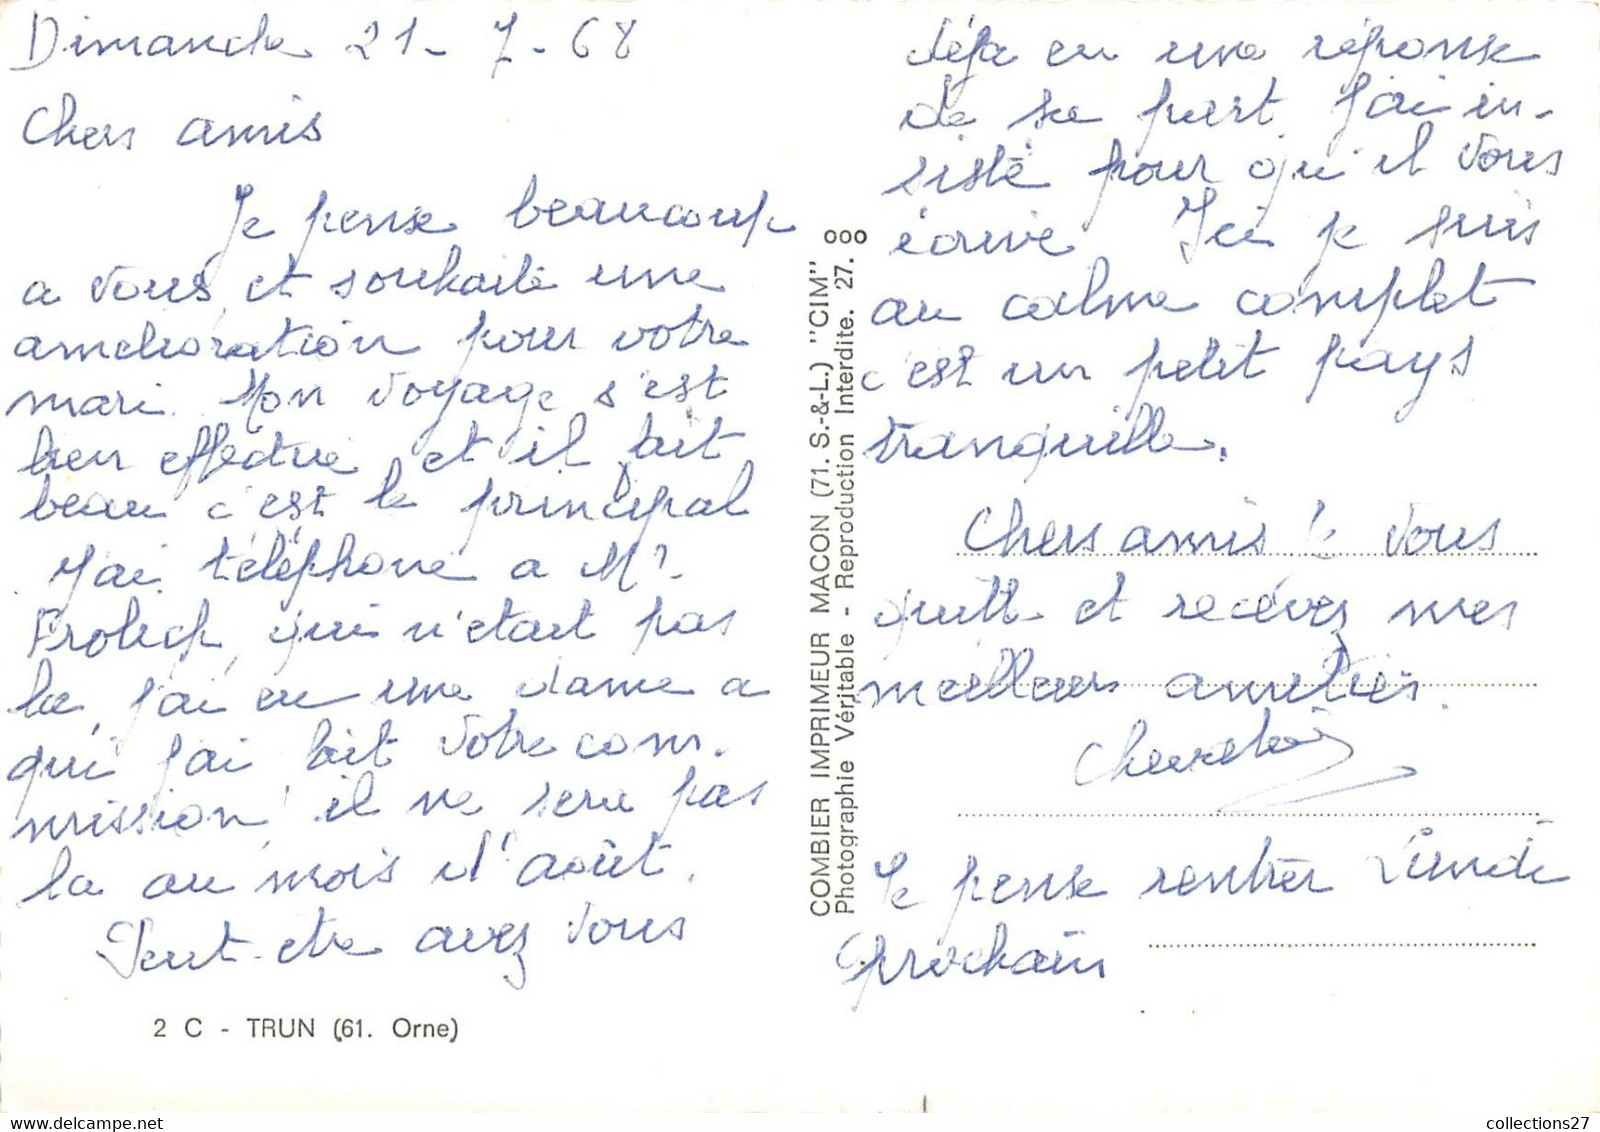 Dimanche 21-7-68
Chers amis
Je pense beaucoup
a vous, et souhaite une
amelioration pour votre
mari. Mon voyage s'est
bien effectué et il fait
beau c'est le principal
J'ai téléphone a Mr.
Frolich, qui n'etait pas
la, j'ai eu une dame a
qui j'ai fait votre com-
mission, il ne sera pas
la au mois d'août.
Peut-etre avez vous
2 C - TRUN (61. Orne)
COMBIER IMPRIMEUR MACON (71. S.-&-L.) "CIM"
Photographie Véritable - Reproduction Interdite. 27.
déja eu une réponse
de sa part. J'ai in-
sisté pour qu'il vous
écrive. Ici je suis
au calme complet
c'est un petit pays
tranquille.
Chers amis je vous
quitte et recévez mes
meilleurs amitiés.
Je pense rentrer Lundi
prochain
collections27